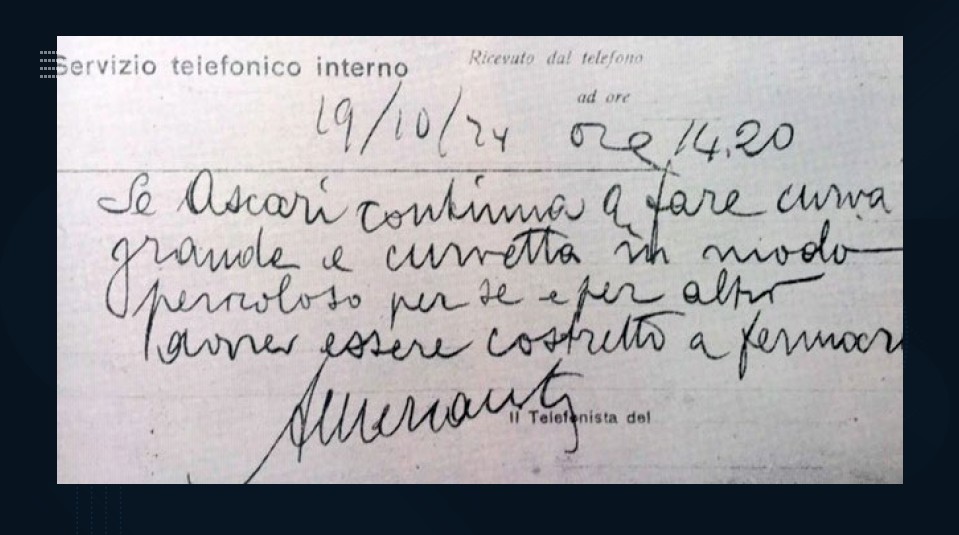 Servizio telefonico interno
Ricevuto dal telefono
ad ore
19/10/24 ore 14.20
Se Ascari continua a fare curva
grande e curvetta in modo
pericoloso per se e per altri
dovrei essere costretto a fermar
Il Telefonista del